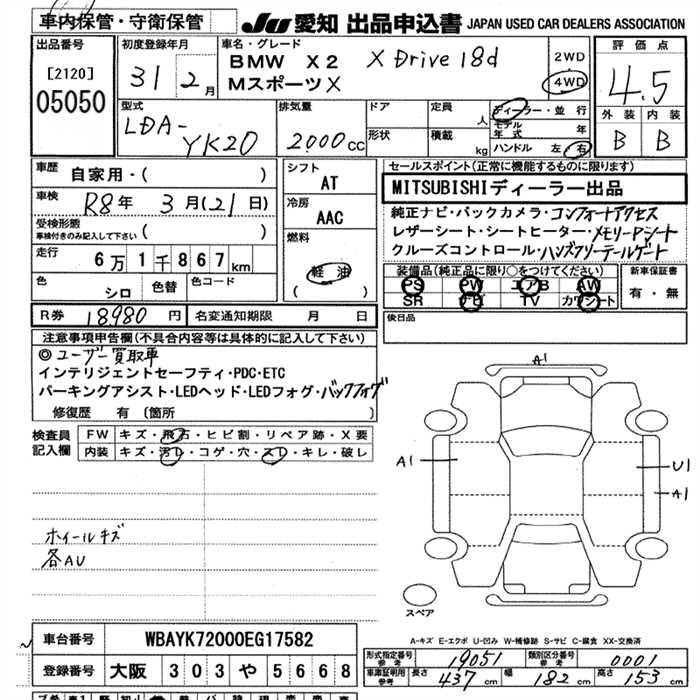 車内保管・守衛保管
JU 愛知 出品申込書 JAPAN USED CAR DEALERS ASSOCIATION
出品番号
[2120]
05050
初度登録年月
31 2月
車名・グレード
BMW X2 X Drive 18d
MスポーツX
2WD
4WD
評価点
4.5
外装 内装
B B
型式
LDA-
YK20
排気量
2000cc
ドア
形状
定員
人
積載
kg
ディーラー・並行
モデル年式 年
ハンドル 左・右
車歴
自家用・( )
車検
R8年 3月(21日)
受検形態
車検付きのみ記入して下さい ( )
走行
6万1千867km
色
シロ
色替
色コード
シフト
AT
冷房
AAC
燃料
軽油
( )
セールスポイント(正常に機能するものに限ります)
MITSUBISHIディーラー出品
純正ナビ・バックカメラ・コンフォートアクセス
レザーシート・シートヒーター・メモリーPシート
クルーズコントロール・ハンズフリーテールゲート
装備品(純正品に限り○をつけてください)
PS PW エアB AW
SR ナビ TV カワシート
新車保証書
有・無
R券 18980円
名変通知期限 月 日
後日品
注意事項申告欄(不具合内容等は具体的に記入して下さい)
◎ユーザー買取車
インテリジェントセーフティ・PDC・ETC
パーキングアシスト・LEDヘッド・LEDフォグ・バックフォグ
修復歴 有 (箇所 )
検査員記入欄
FW キズ・飛石・ヒビ割・リペア跡・X要
内装 キズ・汚レ・コゲ・穴・スレ・キレ・破レ
ホイールキズ
各AU
A1
A1
U1
A1
スペア
A-キズ E-エクボ U-凹み W-補修跡 S-サビ C-腐食 XX-交換済
車台番号 WBAYK72000EG17582
登録番号 大阪 303 や 5668
形式指定番号 参考 19051
類別区分番号 参考 0001
車庫証明用 参考 長さ 437cm 幅 182cm 高さ 153cm